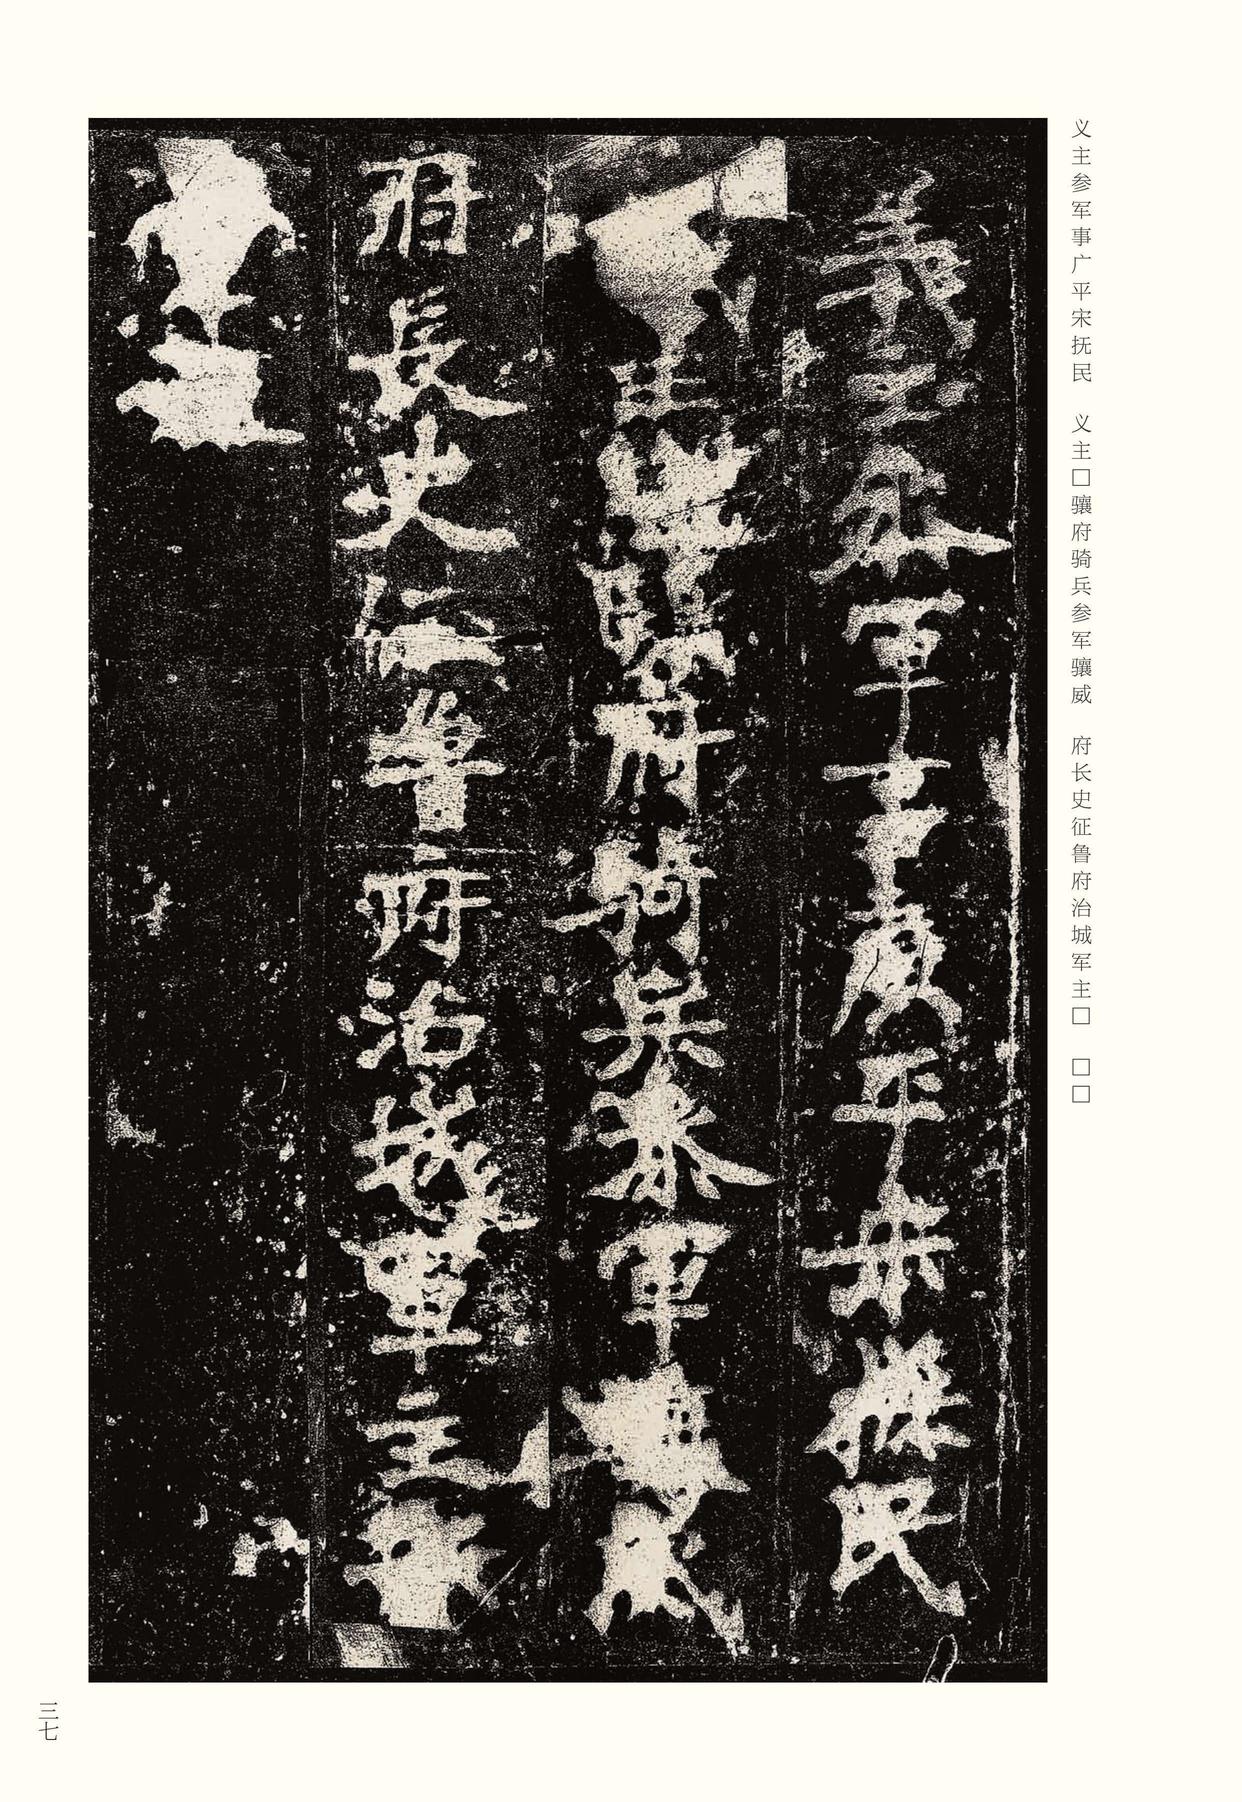 义主参军事广平宋抚民 义主□骧府骑兵参军骧威 府长史征鲁府治城军主□ □□
義主參軍事廣平宋撫民
主 府騎兵參軍 威
府長史征魯府治城軍主
三七